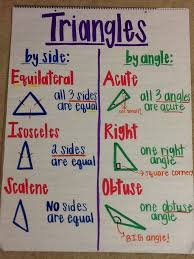 Triangles
by side:
Equilateral
all 3 sides
are equal
Isosceles
2 sides
are equal
Scalene
NO sides
are equal
by angle:
Acute
all 3 angles
are acute
Right
one right
angle
→ square corner
Obtuse
one obtuse
angle
BIG angle!